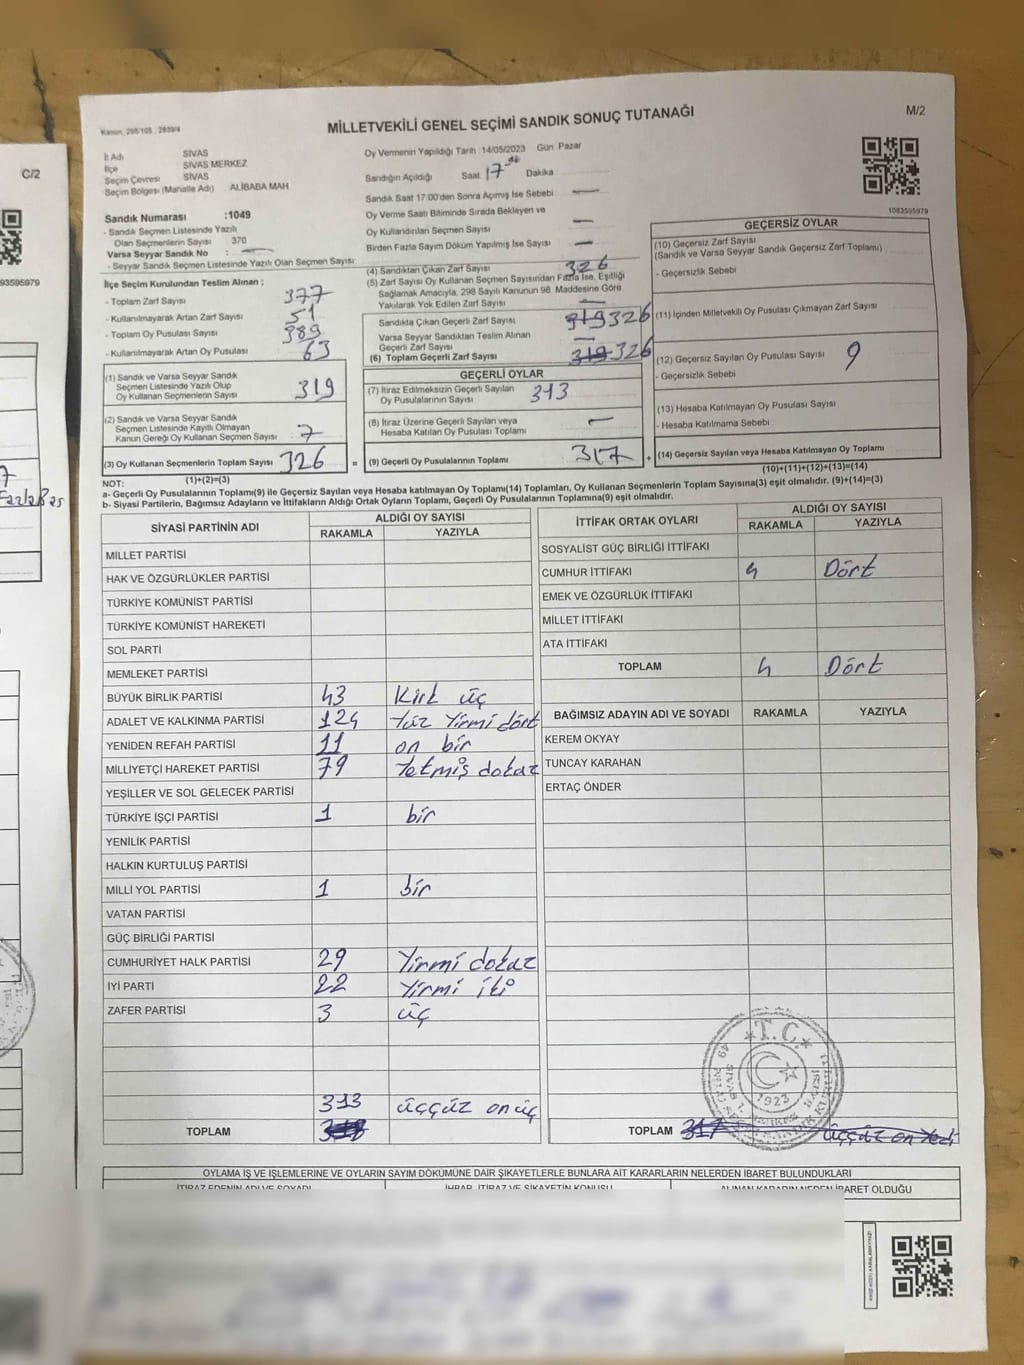 Kanun_298/105_2839/4
MİLLETVEKİLİ GENEL SEÇİMİ SANDIK SONUÇ TUTANAĞI
M/2
C/2
İl Adı : SİVAS
İlçe : SİVAS MERKEZ
Seçim Çevresi : SİVAS
Seçim Bölgesi (Mahalle Adı) : ALİBABA MAH
Oy Vermenin Yapıldığı Tarih :14/05/2023 Gün Pazar
Sandığın Açıldığı Saat 17 Dakika
Sandık Saat 17:00'den Sonra Açımış İse Sebebi —
Oy Verme Saati Bitiminde Sırada Bekleyen ve
Oy Kullandırılan Seçmen Sayısı —
Birden Fazla Sayım Döküm Yapılmış İse Sayısı —
1083595979
93595979
Sandık Numarası :1049
- Sandık Seçmen Listesinde Yazılı
Olan Seçmenlerin Sayısı : 370
Varsa Seyyar Sandık No : —
- Seyyar Sandık Seçmen Listesinde Yazılı Olan Seçmen Sayısı:
İlçe Seçim Kurulundan Teslim Alınan ;
- Toplam Zarf Sayısı 377
- Kullanılmayarak Artan Zarf Sayısı 51
- Toplam Oy Pusulası Sayısı 389
- Kullanılmayarak Artan Oy Pusulası 63
(1) Sandık ve Varsa Seyyar Sandık
Seçmen Listesinde Yazılı Olup
Oy Kullanan Seçmenlerin Sayısı 319
(2) Sandık ve Varsa Seyyar Sandık
Seçmen Listesinde Kayıtlı Olmayan
Kanun Gereği Oy Kullanan Seçmen Sayısı 7
(3) Oy Kullanan Seçmenlerin Toplam Sayısı 326
(1)+(2)=(3)
(4) Sandıktan Çıkan Zarf Sayısı 326
(5) Zarf Sayısı Oy Kullanan Seçmen Sayısından Fazla İse, Eşitliği
Sağlamak Amacıyla, 298 Sayılı Kanunun 98. Maddesine Göre
Yakılarak Yok Edilen Zarf Sayısı —
Sandıkta Çıkan Geçerli Zarf Sayısı 319 326
Varsa Seyyar Sandıktan Teslim Alınan
Geçerli Zarf Sayısı —
(6) Toplam Geçerli Zarf Sayısı 319 326
GEÇERLİ OYLAR
(7) İtiraz Edilmeksizin Geçerli Sayılan
Oy Pusulalarının Sayısı 313
(8) İtiraz Üzerine Geçerli Sayılan veya
Hesaba Katılan Oy Pusulası Toplamı —
= (9) Geçerli Oy Pusulalarının Toplamı 317
GEÇERSİZ OYLAR
(10) Geçersiz Zarf Sayısı
(Sandık ve Varsa Seyyar Sandık Geçersiz Zarf Toplamı)
- Geçersizlik Sebebi
(11) İçinden Milletvekili Oy Pusulası Çıkmayan Zarf Sayısı
(12) Geçersiz Sayılan Oy Pusulası Sayısı 9
- Geçersizlik Sebebi
(13) Hesaba Katılmayan Oy Pusulası Sayısı
- Hesaba Katılmama Sebebi
+ (14) Geçersiz Sayılan veya Hesaba Katılmayan Oy Toplamı
(10)+(11)+(12)+(13)=(14)
NOT:
a- Geçerli Oy Pusulasının Toplamı(9) ile Geçersiz Sayılan veya Hesaba katılmayan Oy Toplamı(14) Toplamları, Oy Kullanan Seçmenlerin Toplam Sayısına(3) eşit olmalıdır. (9)+(14)=(3)
b- Siyasi Partilerin, Bağımsız Adayların ve İttifakların Aldığı Ortak Oyların Toplamı, Geçerli Oy Pusulalarının Toplamına(9) eşit olmalıdır.
SİYASİ PARTİNİN ADI
ALDIĞI OY SAYISI
RAKAMLA YAZIYLA
MİLLET PARTİSİ
HAK VE ÖZGÜRLÜKLER PARTİSİ
TÜRKİYE KOMÜNİST PARTİSİ
TÜRKİYE KOMÜNİST HAREKETİ
SOL PARTİ
MEMLEKET PARTİSİ
BÜYÜK BİRLİK PARTİSİ 43 Kırk üç
ADALET VE KALKINMA PARTİSİ 124 Yüz Yirmi dört
YENİDEN REFAH PARTİSİ 11 on bir
MİLLİYETÇİ HAREKET PARTİSİ 79 Yetmiş dokuz
YEŞİLLER VE SOL GELECEK PARTİSİ
TÜRKİYE İŞÇİ PARTİSİ 1 bir
YENİLİK PARTİSİ
HALKIN KURTULUŞ PARTİSİ
MİLLİ YOL PARTİSİ 1 bir
VATAN PARTİSİ
GÜÇ BİRLİĞİ PARTİSİ
CUMHURİYET HALK PARTİSİ 29 Yirmi dokuz
İYİ PARTİ 22 Yirmi iki
ZAFER PARTİSİ 3 üç
313 üççüz onüç
TOPLAM
İTTİFAK ORTAK OYLARI
ALDIĞI OY SAYISI
RAKAMLA YAZIYLA
SOSYALİST GÜÇ BİRLİĞİ İTTİFAKI
CUMHUR İTTİFAKI 4 Dört
EMEK VE ÖZGÜRLÜK İTTİFAKI
MİLLET İTTİFAKI
ATA İTTİFAKI
TOPLAM 4 Dört
BAĞIMSIZ ADAYIN ADI VE SOYADI RAKAMLA YAZIYLA
KEREM OKYAY
TUNCAY KARAHAN
ERTAÇ ÖNDER
T.C.
1923
TOPLAM 317 üççüz on Yedi
OYLAMA İŞ VE İŞLEMLERİNE VE OYLARIN SAYIM DÖKÜMÜNE DAİR ŞİKAYETLERLE BUNLARA AİT KARARLARIN NELERDEN İBARET BULUNDUKLARI
İTİRAZ EDENİN ADI VE SOYADI İHBAR, İTİRAZ VE ŞİKAYETİN KONUSU ALINAN KARARIN NEDEN İBARET OLDUĞU